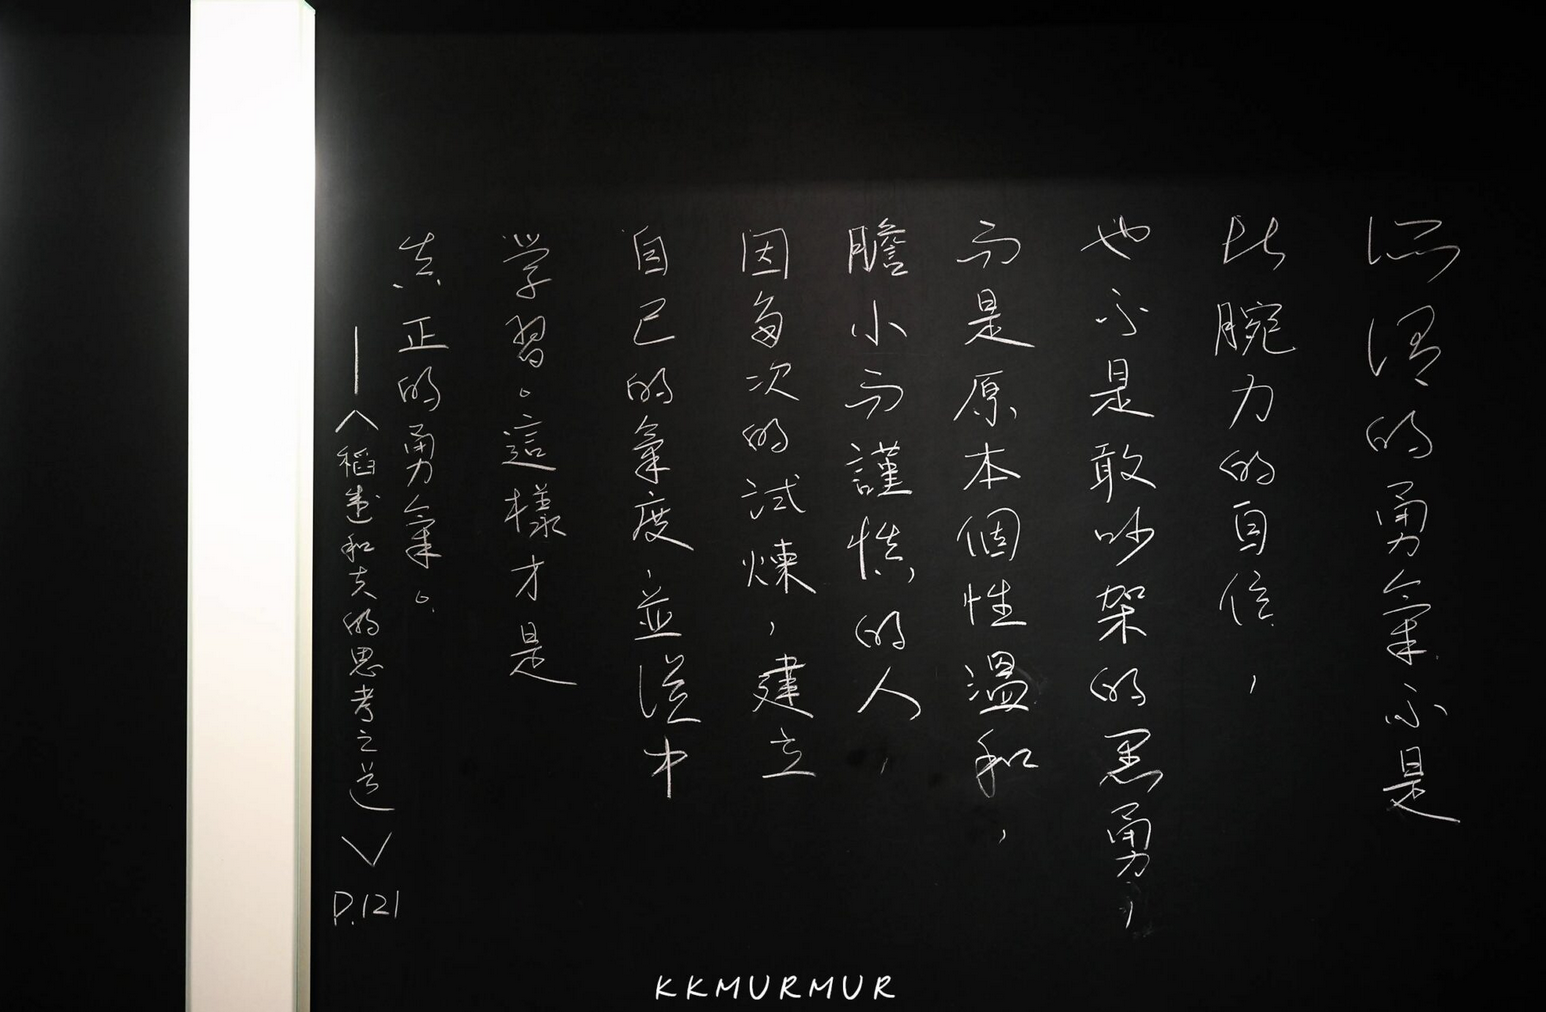 所謂的勇氣不是
比腕力的自信，
也不是敢吵架的愚勇，
而是原本個性溫和，
膽小而謹慎的人，
因每次的試煉，建立
自己的氣度，並從中
学習。這樣才是
真正的勇氣。
——〈稻盛和夫的思考之道〉P.121
KKMURMUR